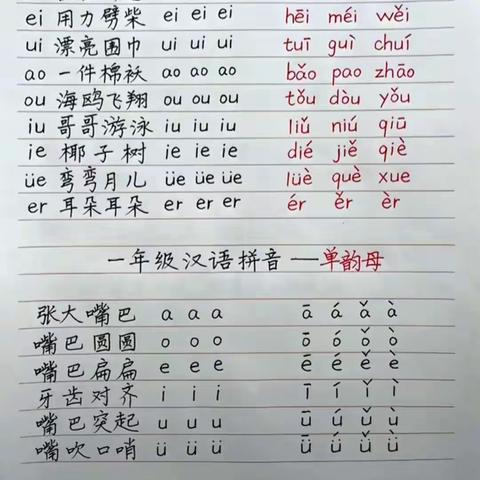 ei 用力劈柴 ei ei ei hēi méi wěi
ui 漂亮围巾 ui ui ui tuī guì chuí
ao 一件棉袄 ao ao ao bǎo pao zhāo
ou 海鸥飞翔 ou ou ou tǒu dòu yǒu
iu 哥哥游泳 iu iu iu liǔ niú qiū
ie 椰子树 ie ie ie dié jiě qiè
üe 弯弯月儿 üe üe üe lüè què xue
er 耳朵耳朵 er er er ér ěr èr
一年级汉语拼音——单韵母
张大嘴巴 a a a ā á ǎ à
嘴巴圆圆 o o o ō ó ǒ ò
嘴巴扁扁 e e e ē é ě è
牙齿对齐 i i i ī í ǐ ì
嘴巴突起 u u u ū ú ǔ ù
嘴吹口哨 ü ü ü ǖ ǘ ǚ ǜ